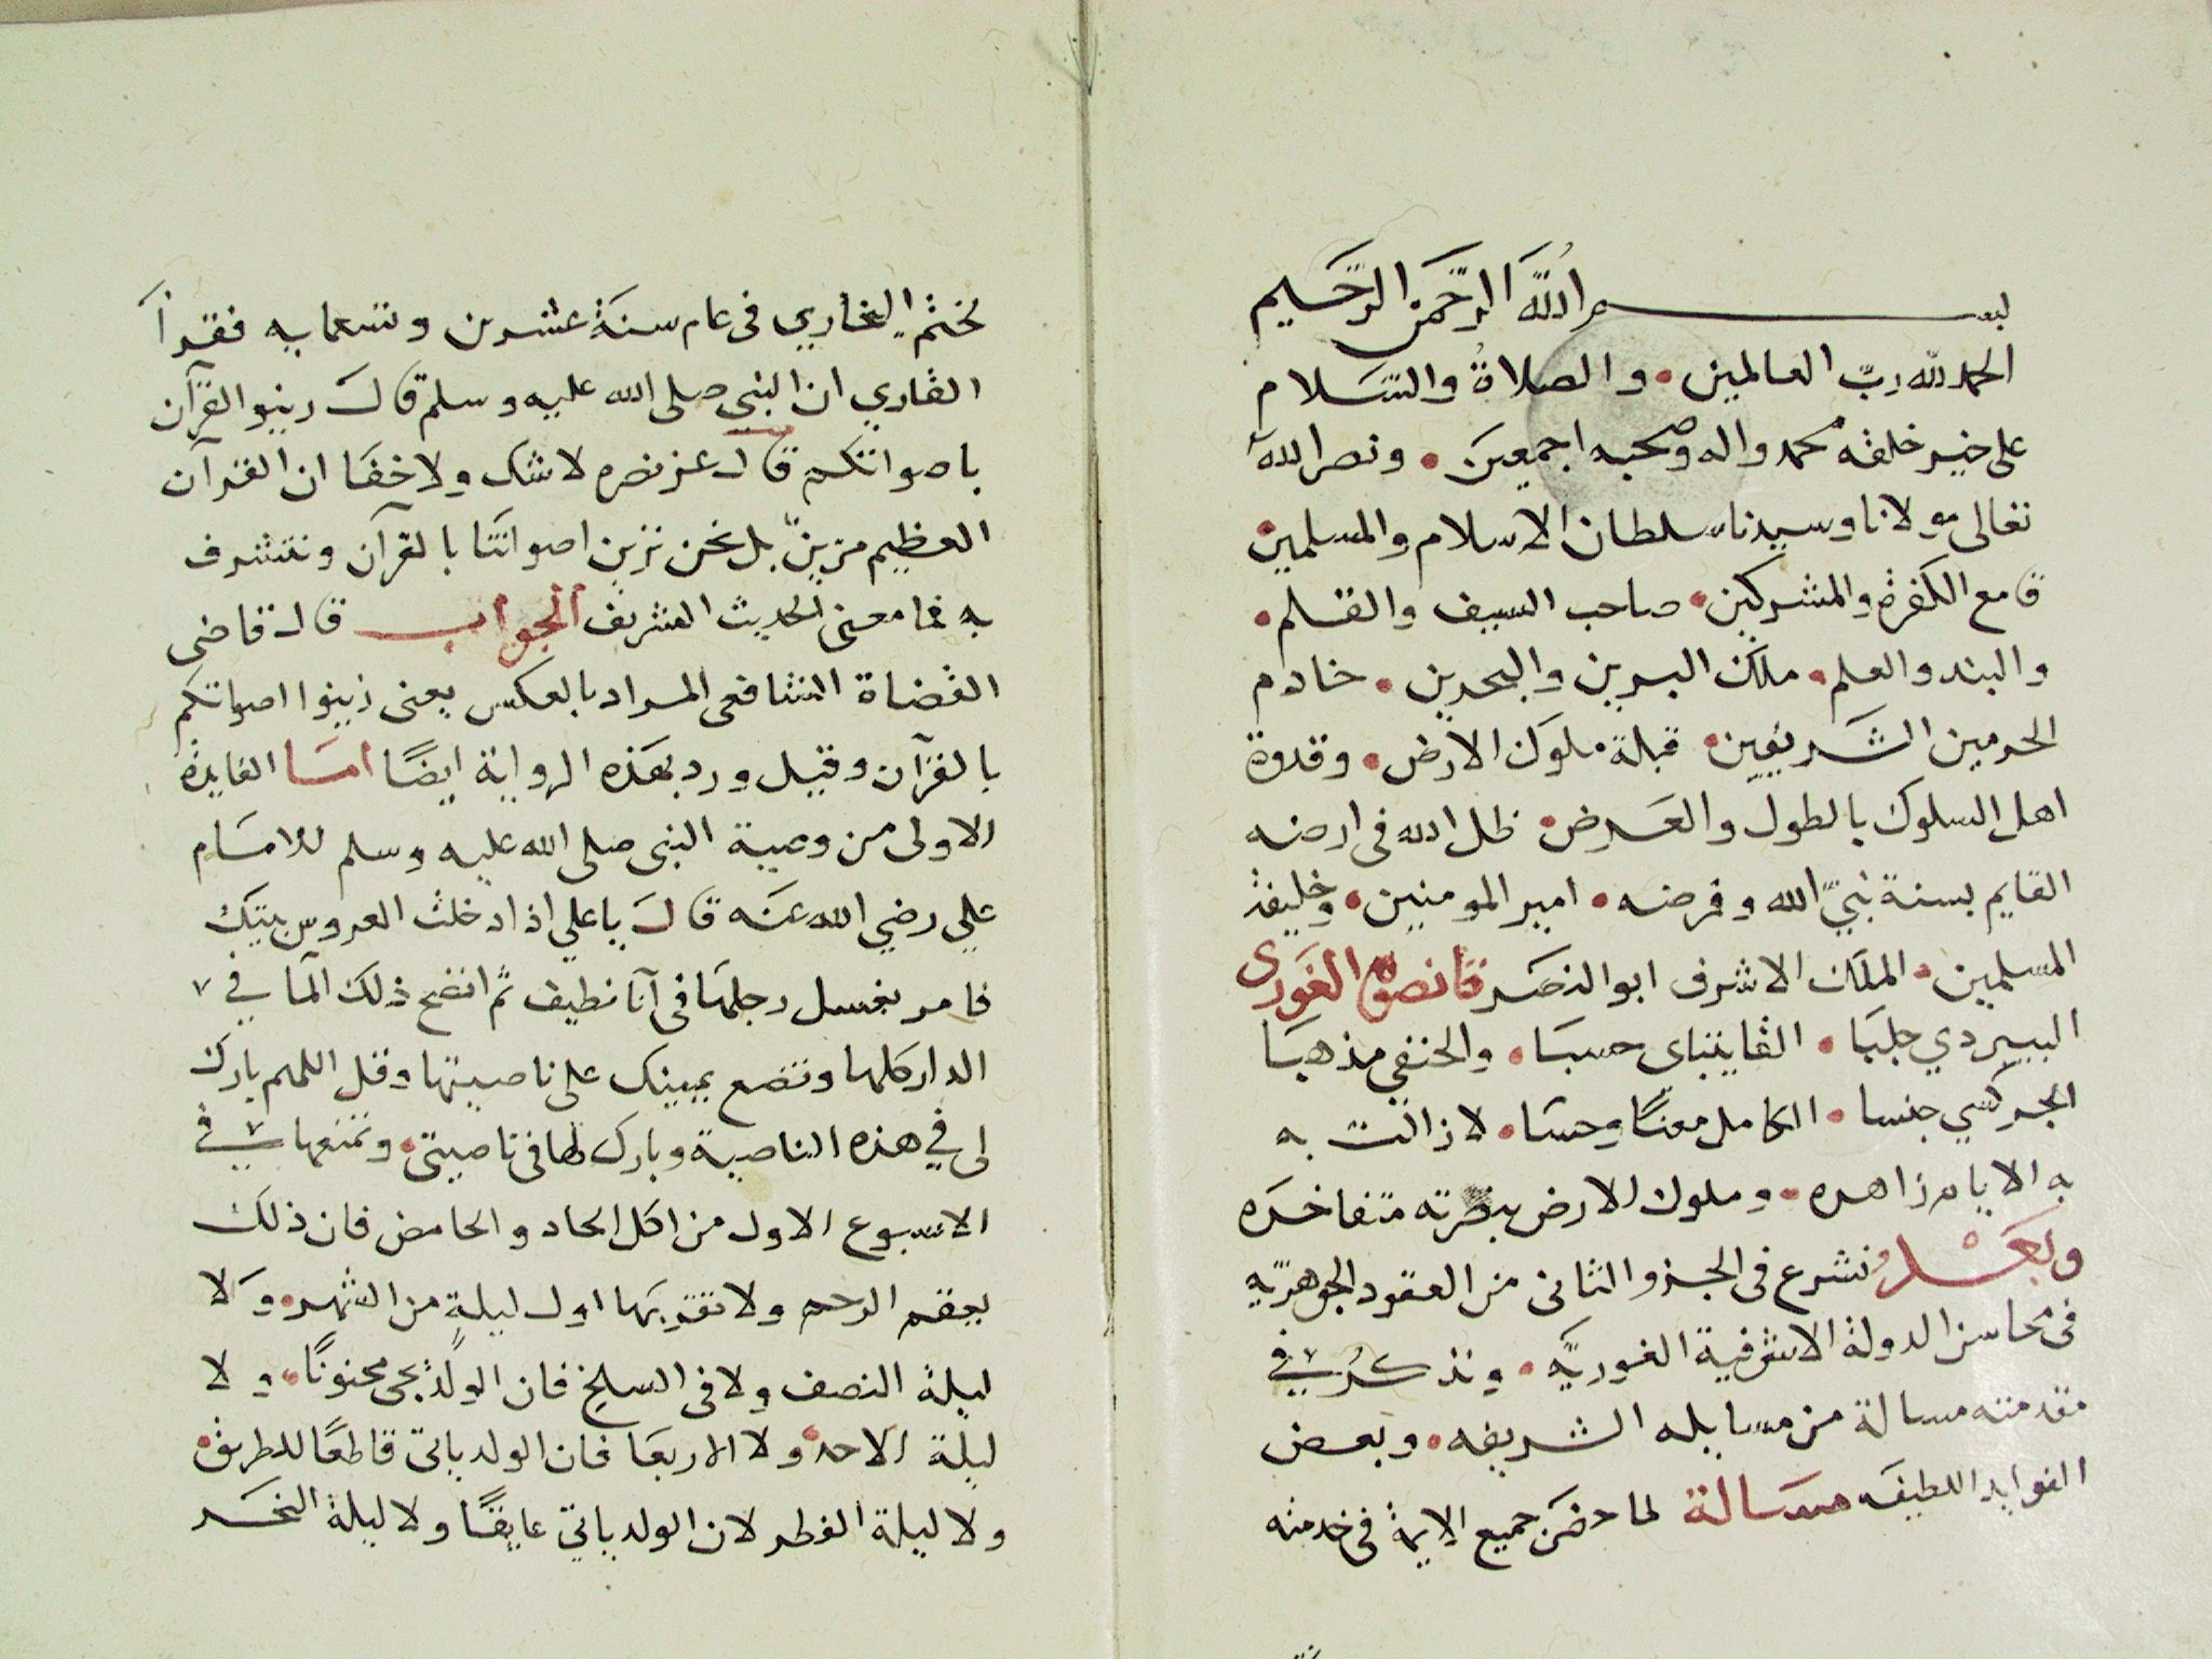 بسم الله الرحمن الرحيم
الحمد لله ربّ العالمين • والصلاةُ والسَّلام
على خير خلقه محمد واله وصحبه اجمعين • ونصر الله
تعالى مولانا وسيدنا سلطان الاسلام والمسلمين
قامع الكفرة والمشركين • صاحب السيف والقلم •
والبند والعلم • ملك البرين والبحرين • خادم
الحرمين الشريفين • قبلة ملوك الارض • وقدوة
اهل السلوك بالطول والعرض • ظل الله فى ارضه
القايم بسنة نبيّ الله وفرضه • امير المومنين • وخليفة
المسلمين • الملك الاشرف ابو النصر قانصوه الغورى
البيبردي جلبا • القايتباى حسبا • والحنفي مذهبا
الجركسي جنسا • الكامل معنًا وحسا • لا زالت به
به الايام زاهره • وملوك الارض بنصرته متفاخره
وبعد نشرع فى الجزو الثانى من العقود الجوهريّه
فى محاسن الدولة الاشرفية الغوريّه • ونذكرُ في
مقدمته مسالة من مسايله الشريفه • وبعض
الفوايد اللطيفه مسالة لما حضر جميع الايمة فى خدمته
لختم البخاري فى عام سنة عشرين وتسعمايه فقرأ
القاري ان النبى صلى الله عليه وسلم قال زينو القرآن
باصواتكم قال عز نصره لا شك ولا خفا ان القرآن
العظيم مزينّ بل نحن نزين اصواتنا بالقرآن ونتشرف
به فما معنى الحديث الشريف الجواب قال قاضى
القضاة الشافعى المراد بالعكس يعنى زينوا اصواتكم
بالقرآن وقيل ورد بهذه الرواية ايضًا اما الفايدة
الاولى من وصية النبى صلى الله عليه وسلم للامام
علي رضي الله عنه قال يا علي اذا دخلت العروس بيتك
فامر بغسل رجلها فى آنا نظيف ثم انضح ذلك المآ في
الدار كلها وتضع يمينك على ناصيتها وقل اللهم بارك
لى في هذه الناصية وبارك لها فى ناصيتى • وتمنعها في
الاسبوع الاول من اكل الحاد والحامض فان ذلك
يعقم الرحم ولا تقربها اول ليلةٍ من الشهر • ولا
ليلة النصف ولا فى السلخ فان الولد يجى مجنونًا • ولا
ليلة الاحد ولا الاربعا فان الولد ياتى قاطعًا للطريق •
ولا ليلة الفطر لان الولد ياتي عايقًا ولا ليلة النحر